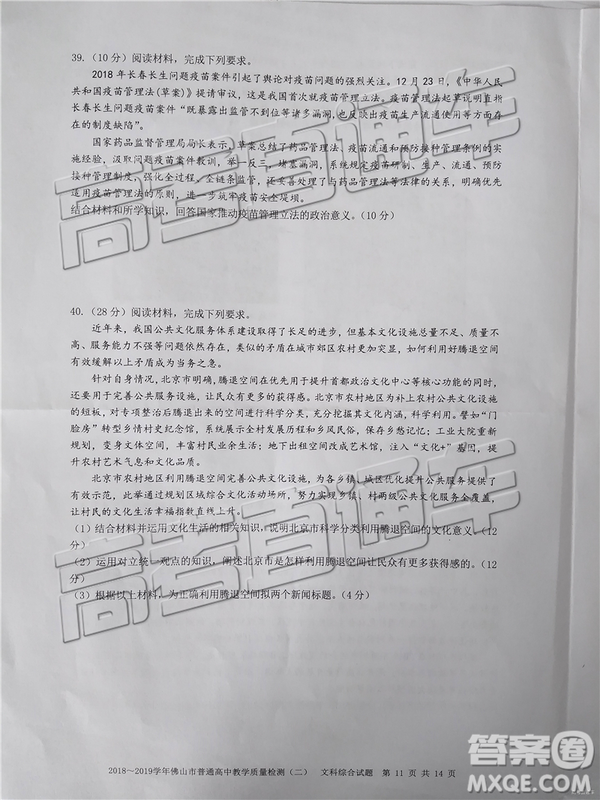 39. (10 分) 阅读材料，完成下列要求。
2018 年长春长生问题疫苗案件引起了舆论对疫苗问题的强烈关注。12 月 23 日，《中华人民
共和国疫苗管理法(草案)》提请审议，这是我国首次就疫苗管理立法。疫苗管理法起草说明直指
长春长生问题疫苗案件“既暴露出监管不到位等诸多漏洞,也反映出疫苗生产流通使用等方面存
在的制度缺陷”。
国家药品监督管理局局长表示，草案总结了药品管理法、疫苗流通和预防接种管理条例的实
施经验，汲取问题疫苗案件教训，举一反三，堵塞漏洞，系统规定疫苗研制、生产、流通、预防
接种管理制度，强化全过程、全链条监管，还妥善处理了与药品管理法等法律的关系，明确优先
适用疫苗管理法的原则，进一步筑牢疫苗安全堤坝。
结合材料和所学知识，回答国家推动疫苗管理立法的政治意义。(10 分)
40. (28 分) 阅读材料，完成下列要求。
近年来，我国公共文化服务体系建设取得了长足的进步，但基本文化设施总量不足、质量不
高、服务能力不强等问题依然存在，类似的矛盾在城市郊区农村更加突显，如何利用好腾退空间
有效缓解以上矛盾成为当务之急。
针对自身情况，北京市明确,腾退空间在优先用于提升首都政治文化中心等核心功能的同时，
还要用于完善公共服务设施，让民众有更多的获得感。北京市农村地区为补上农村公共文化设施
的短板，对专项整治后腾退出来的空间进行科学分类，充分挖掘其文化内涵，科学利用。譬如“门
脸房”转型乡情村史纪念馆，系统展示全村发展历程和乡风民俗，保存乡愁记忆；工业大院重新
规划，变身文体空间，丰富村民业余生活；地下出租空间改成艺术馆，注入“文化+”基因，提
升农村艺术气息和文化品质。
北京市农村地区利用腾退空间完善公共文化设施，为各乡镇、城区优化提升公共服务提供了
有效示范，此举通过规划区域综合文化活动场所，努力实现乡镇、村两级公共文化服务全覆盖，
让村民的文化生活幸福指数直线上升。
(1) 结合材料并运用文化生活的相关知识，说明北京市科学分类利用腾退空间的文化意义。(12
分)
(2) 运用对立统一观点的知识，阐述北京市是怎样利用腾退空间让民众有更多获得感的。(12
分)
(3) 根据以上材料，为正确利用腾退空间拟两个新闻标题。(4 分)
高考直通车
高考直通车
2018～2019学年佛山市普通高中教学质量检测（二） 文科综合试题 第 11 页 共 14 页
答案圈
MXQE.COM